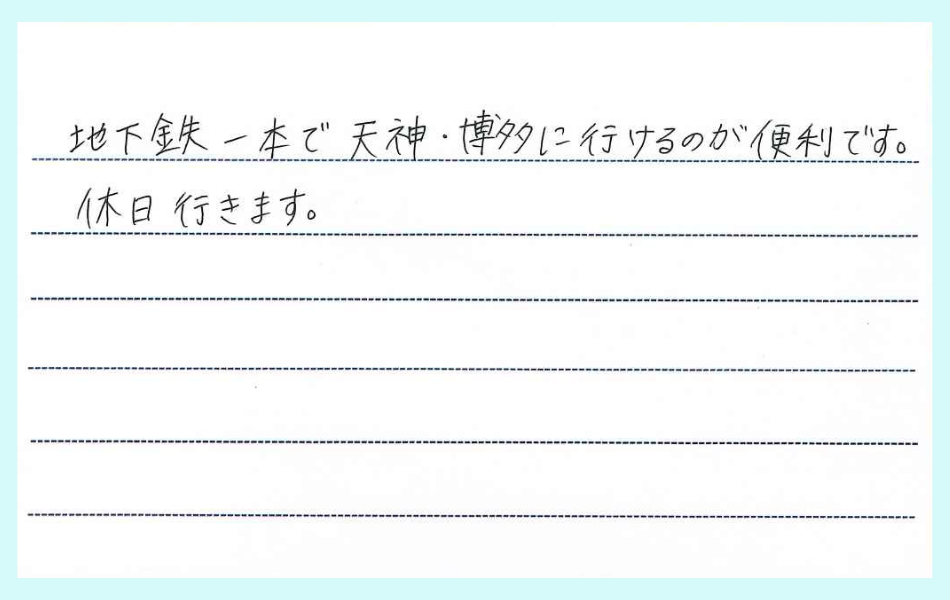 地下鉄一本で天神・博多に行けるのが便利です。
休日行きます。